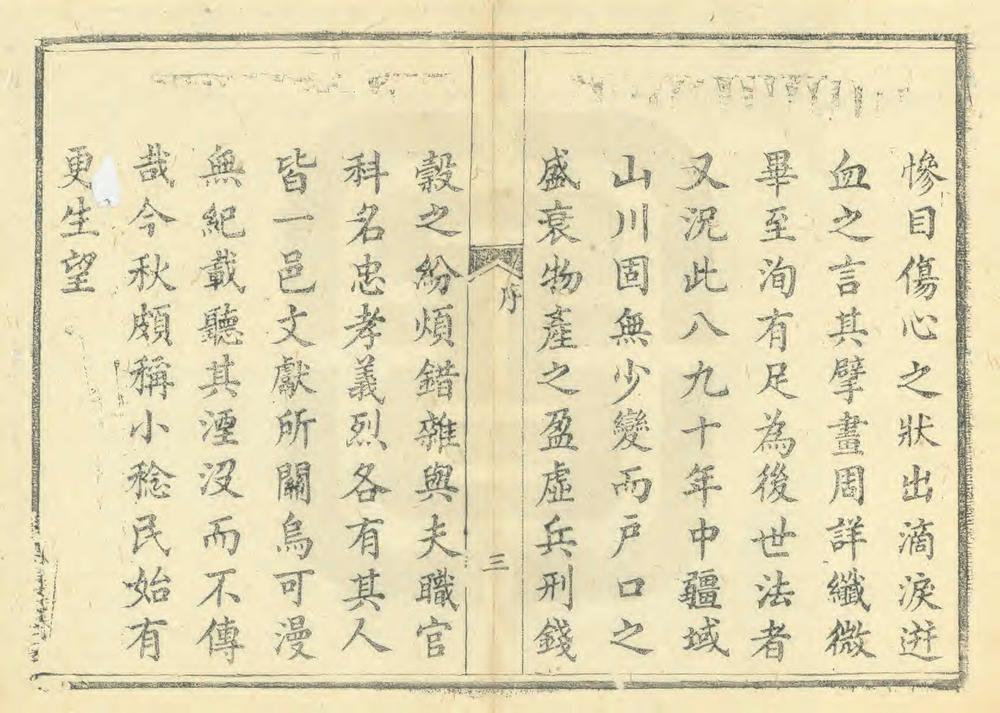 慘目傷心之狀出滴淚迸
血之言其擘畫周詳纖微
畢至洵有足為後世法者
又況此八九十年中疆域
山川固無少變而户口之
盛衰物產之盈虛兵刑錢
序
三
穀之紛煩錯雜與夫職官
科名忠孝義烈各有其人
皆一邑文獻所關烏可漫
無紀載聽其湮沒而不傳
哉今秋頗稱小稔民始有
更生望